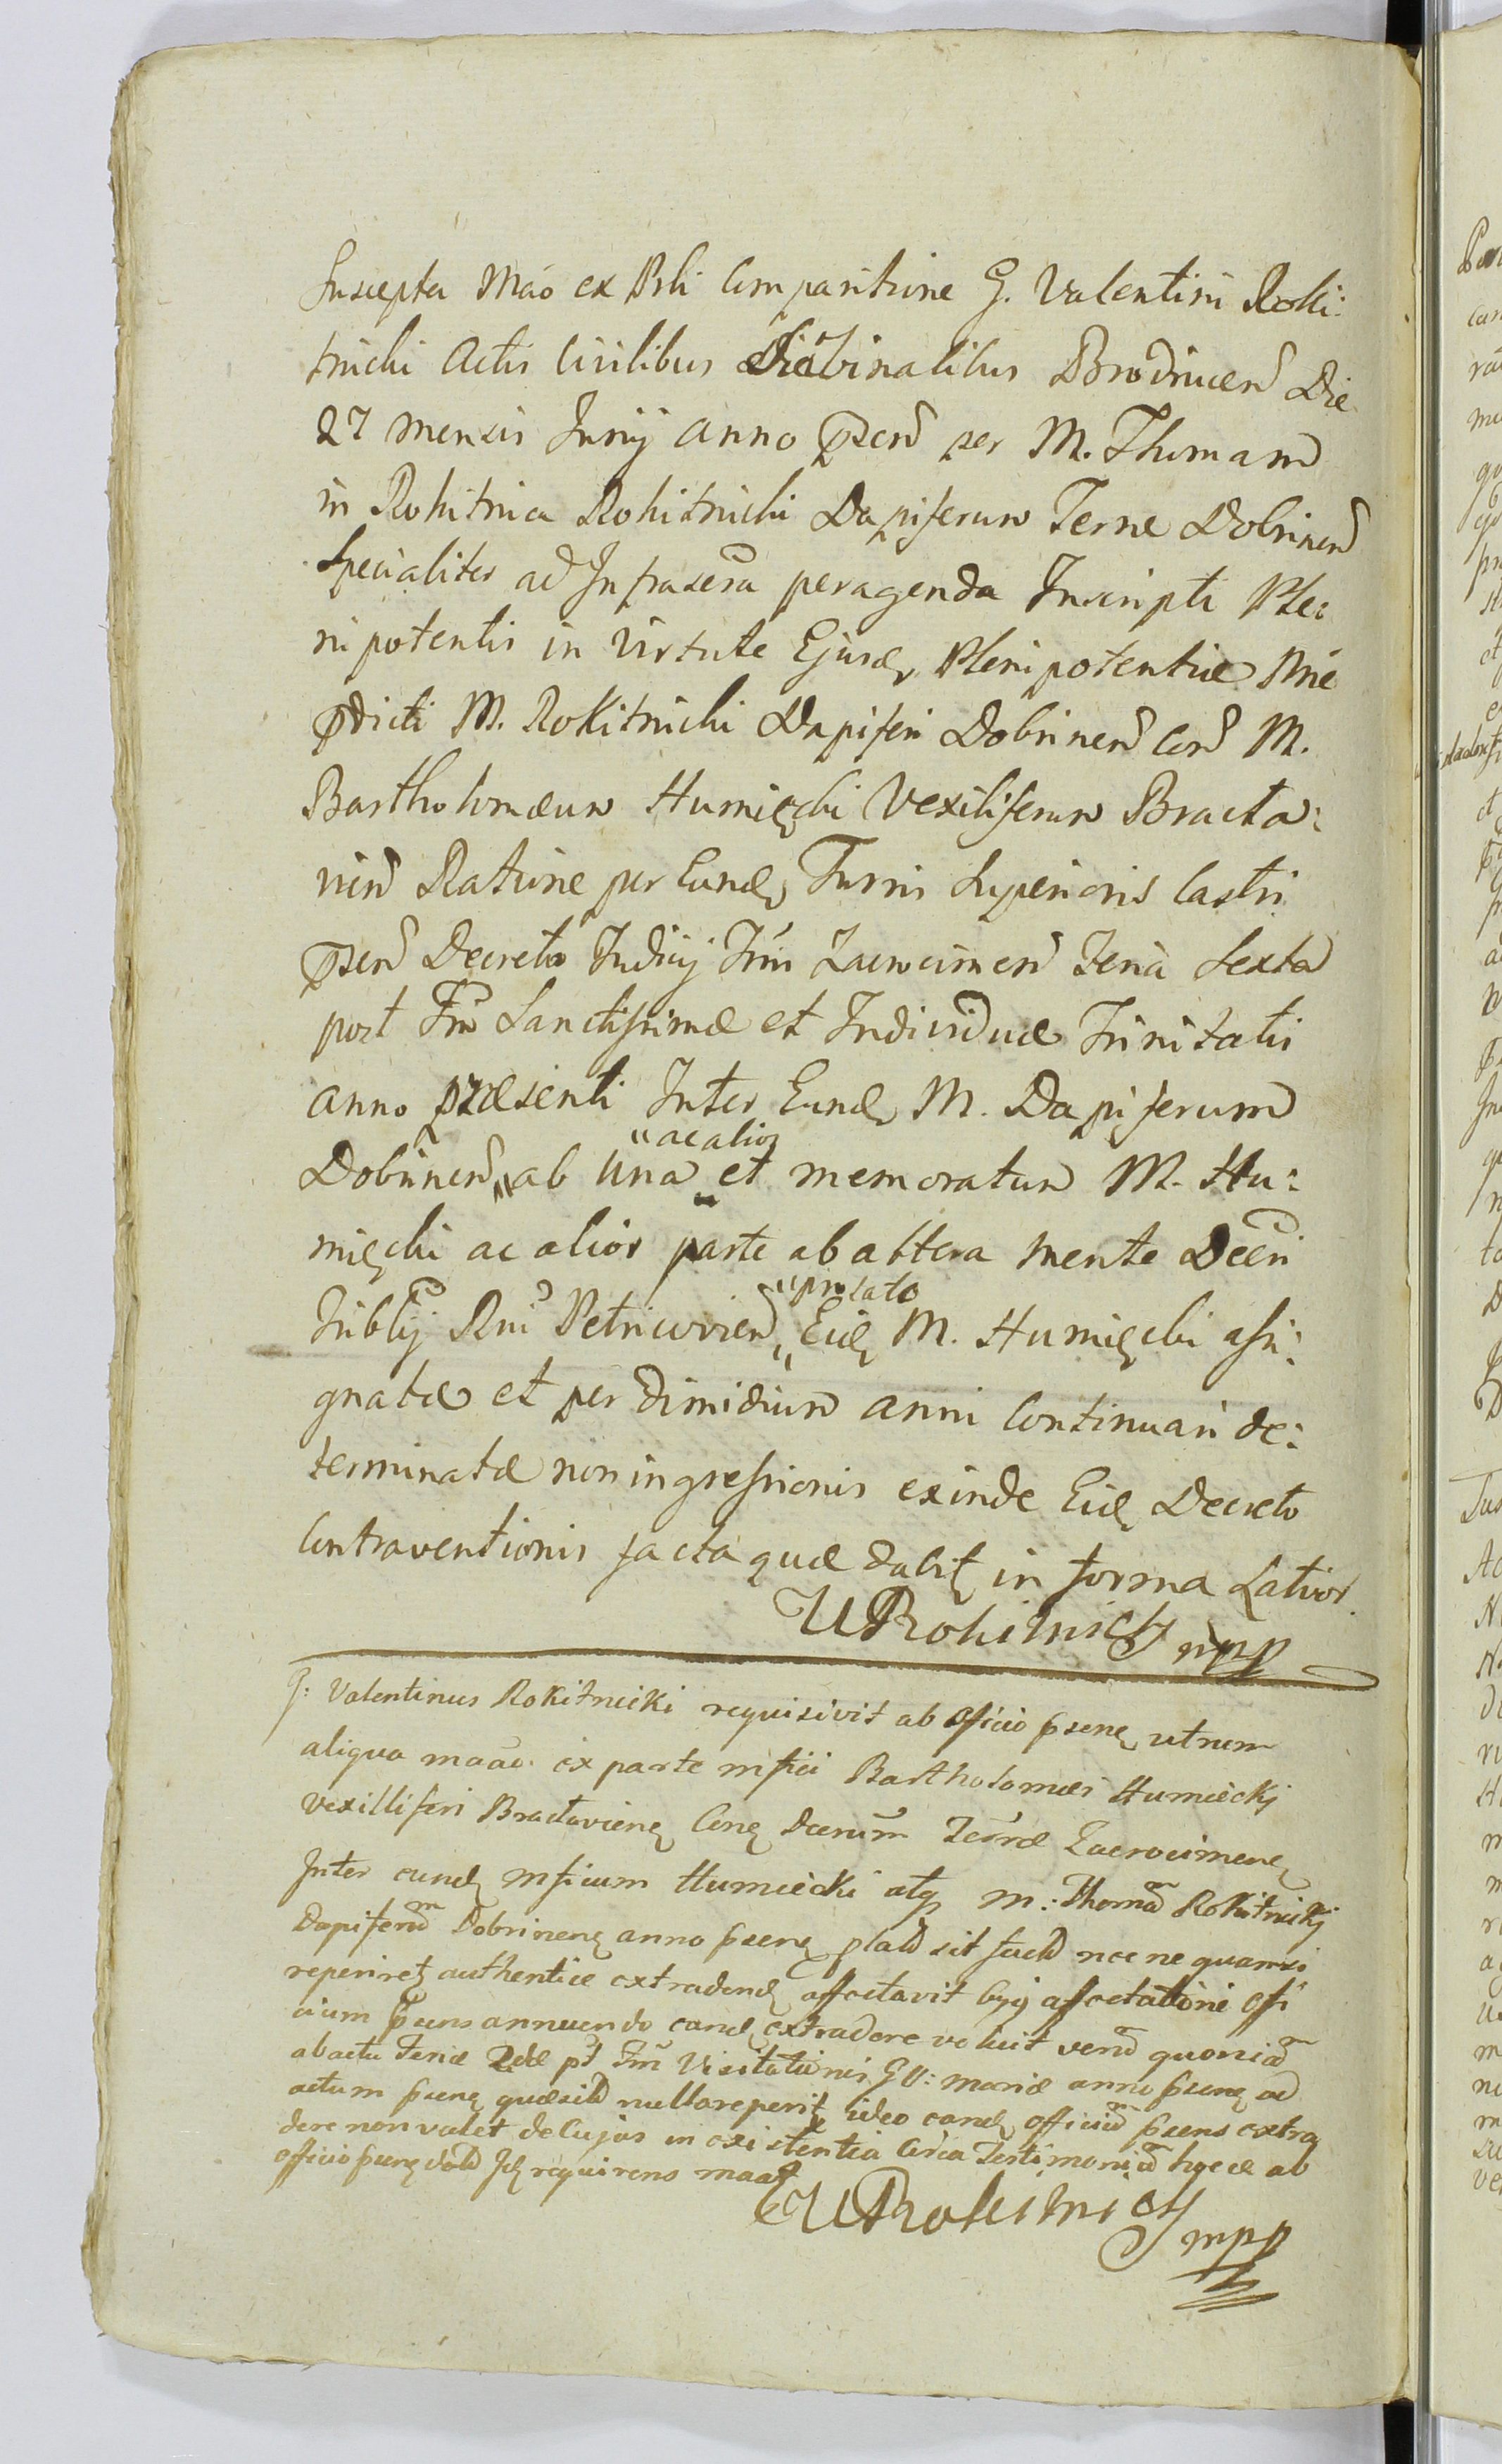 Suscepta Mão ex Prli Comparitione G. Valentini Roki:
tnicki Actis Civilibus Scabinalibus Brodnicen Die
27 mensis Junij anno pseñ per M. Thomam
in Rokitnica Rokitnicki Dapiferum Terræ Dobrinen
Specialiter ad Infrascrã peragenda Inscripti Ple:
nipotentis in virtute Ejusd Plenipotentiæ Nñe
pdicti M. Rokitnicki Dapiferi Dobrinen Con M.
Bartholomæum Humięcki Vexiliferum Bracta:
vien Ratione per Eund Turris Superioris Castri
pseñ Decreto Judicij Trris Zacrocimen Feria Sexta
post Fm Sanctissimæ et Individuæ Trinitatis
anno præsenti Inter Eund M. Dapiferum
Dobrinen " ab una "ac alior et memoratum M. Hu:
mięcki ac alior parte ab altera mente Decri
Triblij Rni Petricovien " "prolato Eid M. Humięcki assi:
gnatæ et per dimidium anni Continuari de:
terminatæ non ingressionis exinde Eid Decreto
Contraventionis facta quæ dabit in forma Latior.
VRokitnicki mpp
G: Valentinus Rokitnicki requisivit ab Officio psenę utrum
aliqua maão ex parte mfici Bartholomæi Humiecki
Vexilliferi Bractavienę Conę Decrum Terræ Zacrocimenę
Inter eund mficum Humiecki atq M: Thomã Rokitnicki
Dapiferũ Dobrinenę anno psenę plat sit fact nec ne quam si
reperiret authentice extradend affectavit Cujq affectationi Offi
cium psens annuendo eand extradere voluit verũ quoniã
ab actu Feriæ 2dæ pt Fm Visitationis G V: mariæ anno psenę ad
actum psenę quæsit nulla reperit ideo eand officiũ psens extra
dere non valet de Cujus in existentia Circa Testimoniũ hocce ab
officio psenę dat Id requirens maat
VRokitnicki
mpp